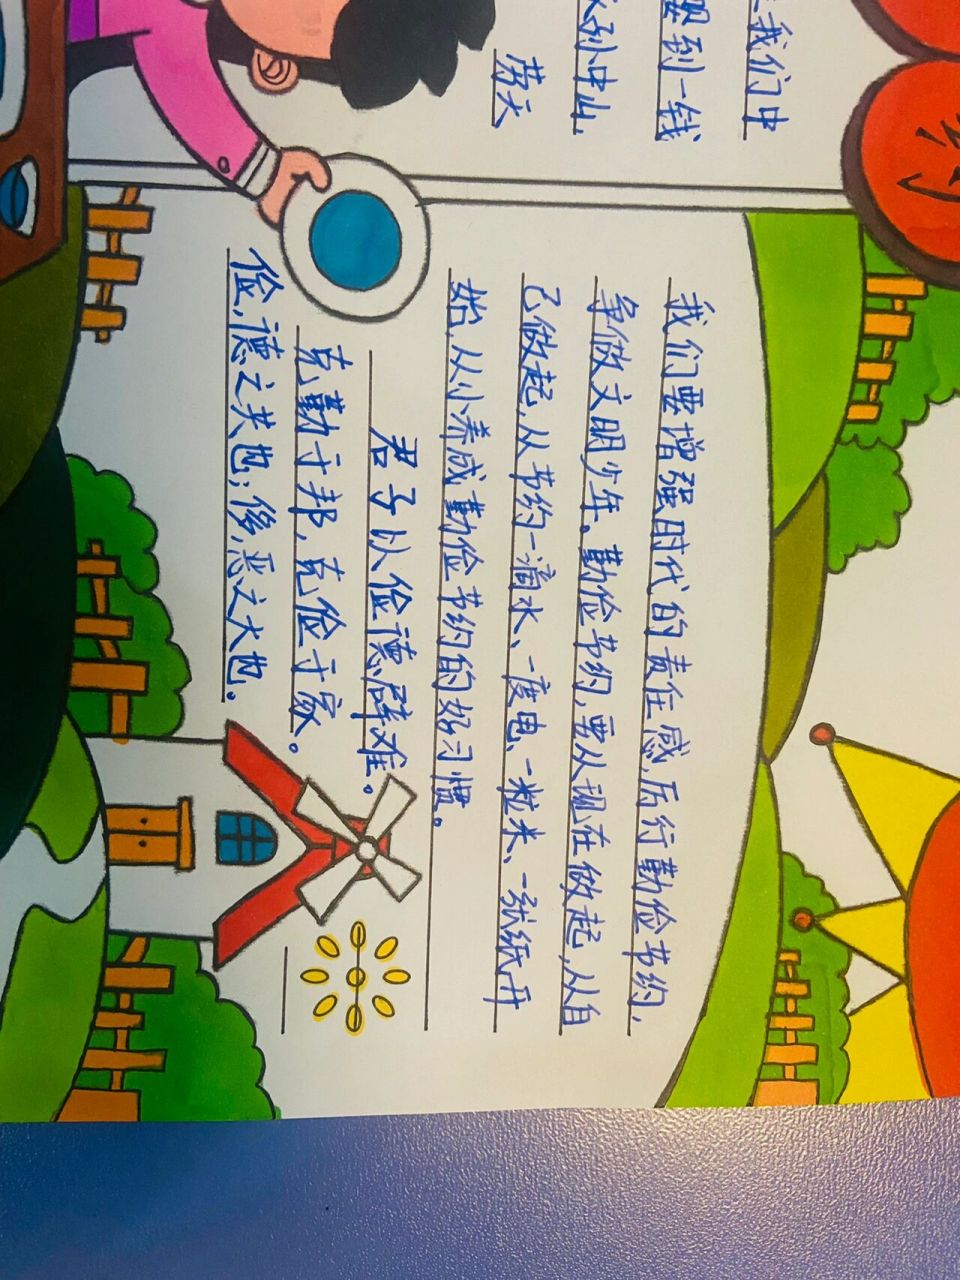 我们中
要到一钱
孙中山.
节天
我们要增强时代的责任感,厉行勤俭节约,
争做文明少年。勤俭节约,要从现在做起,从自
己做起,从节约一滴水、一度电、一粒米、一纸纸开
始,从小养成勤俭节约的好习惯。
君子以俭德辟难。
克勤于邦,克俭于家。
俭,德之共也;侈,恶之大也.